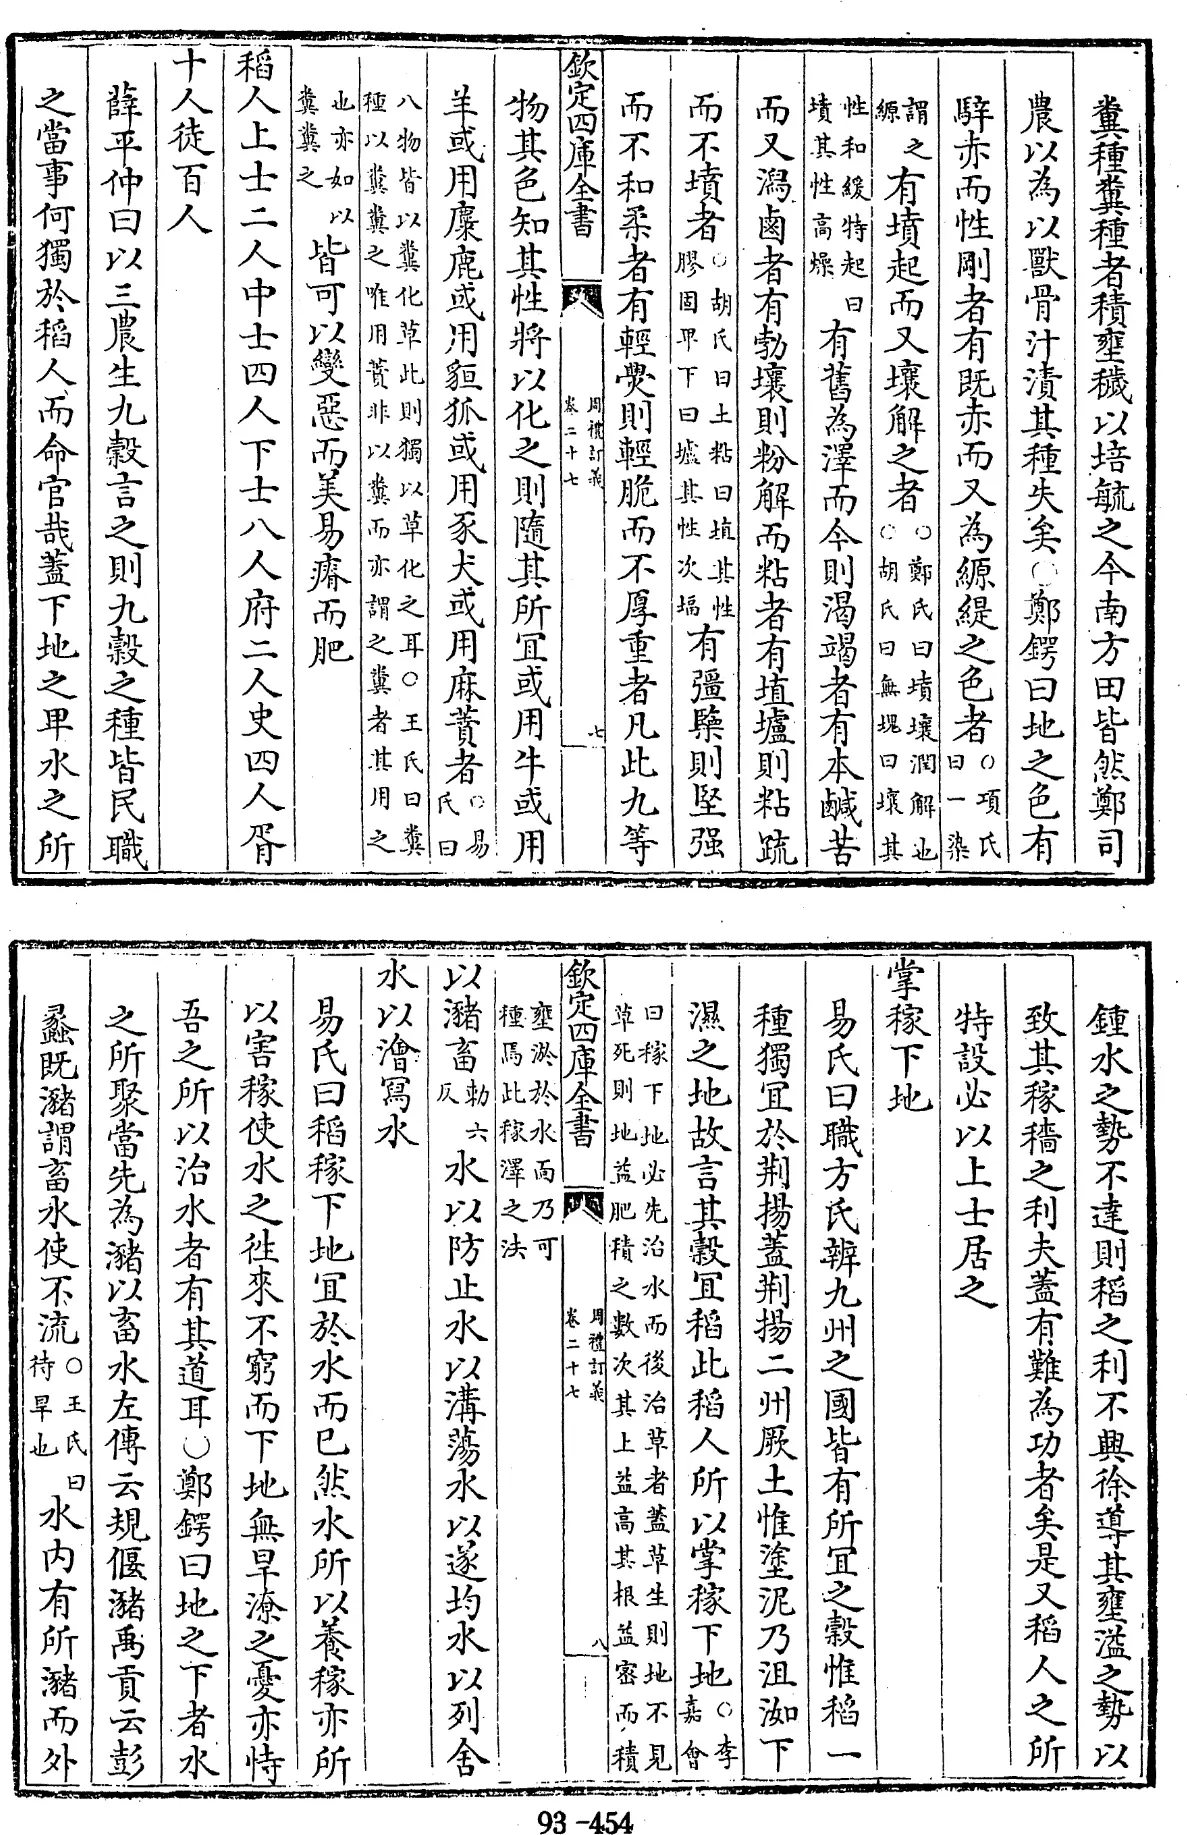 糞種糞種者積壅穢以培毓之今南方田皆然鄭司
農以為以獸骨汁漬其種失矣○鄭鍔曰地之色有
騂赤而性剛者有既赤而又為縓緹之色者○項氏曰一染
謂之縓有墳起而又壤解之者○鄭氏曰墳壤潤解也○胡氏曰無塊曰壤其
性和緩特起曰墳其性高燥有舊為澤而今則渴竭者有本鹹苦
而又潟鹵者有勃壤則粉解而粘者有埴壚則粘疏
而不墳者○胡氏曰土粘曰埴其性膠固卑下曰壚其性次堛有彊㯺則堅强
而不和柔者有輕㷸則輕脆而不厚重者凡此九等
欽定四庫全書 周禮訂義 卷二十七 七
物其色知其性將以化之則隨其所宜或用牛或用
羊或用麋鹿或用貆狐或用豕犬或用麻蕡者○易氏曰
八物皆以糞化草此則獨以草化之耳○王氏曰糞種以糞糞之唯用蕡非以糞而亦謂之糞者其用之
也亦如以糞糞之皆可以變惡而美易瘠而肥
稻人上士二人中士四人下士八人府二人史四人胥
十人徒百人
薛平仲曰以三農生九穀言之則九穀之種皆民職
之當事何獨於稻人而命官哉蓋下地之卑水之所
鍾水之勢不達則稻之利不興徐導其壅溢之勢以
致其稼穡之利夫蓋有難為功者矣是又稻人之所
特設必以上士居之
掌稼下地
易氏曰職方氏辨九州之國皆有所宜之穀惟稻一
種獨宜於荆揚蓋荆揚二州厥土惟塗泥乃沮洳下
濕之地故言其穀宜稻此稻人所以掌稼下地○李嘉會
曰稼下地必先治水而後治草者蓋草生則地不見草死則地益肥積之數次其上益高其根益密而積
欽定四庫全書 周禮訂義 卷二十七 八
壅淤於水面乃可種焉此稼澤之法
以瀦畜勑六反水以防止水以溝蕩水以遂均水以列舍
水以澮寫水
易氏曰稻稼下地宜於水而已然水所以養稼亦所
以害稼使水之徃來不窮而下地無旱潦之憂亦恃
吾之所以治水者有其道耳○鄭鍔曰地之下者水
之所聚當先為瀦以畜水左傳云規偃瀦禹貢云彭
蠡既瀦謂畜水使不流○王氏曰待旱也水内有所瀦而外
93-454